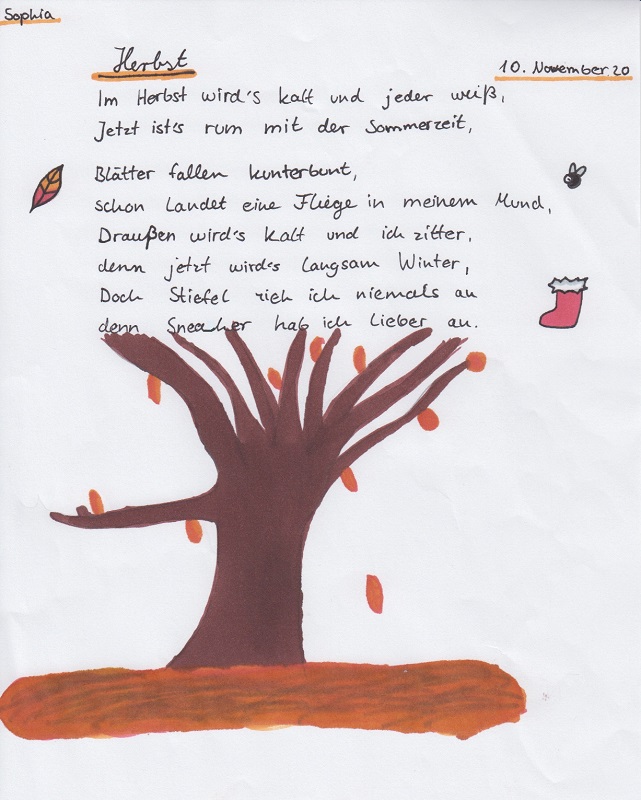 Sophia
Herbst
10. November 20
Im Herbst wird's kalt und jeder weiß,
Jetzt ist's rum mit der Sommerzeit,
Blätter fallen kunterbunt,
schon landet eine Fliege in meinem Mund,
Draußen wird's kalt und ich zitter,
denn jetzt wird's langsam Winter,
Doch Stiefel zieh ich niemals an
denn Sneaker hab ich lieber an.